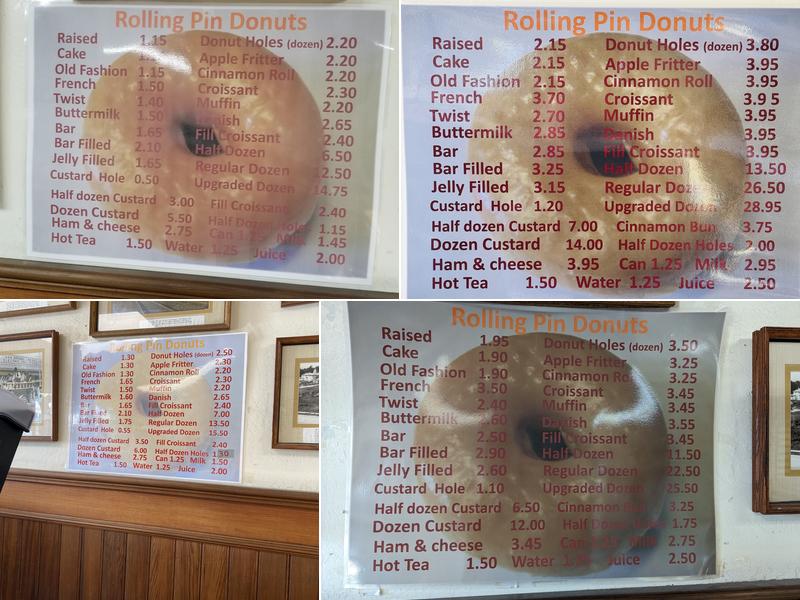 Rolling Pin Donuts
Raised 1.15 Donut Holes (dozen) 2.20
Cake Apple Fritter 2.20
Old Fashion 1.15 Cinnamon Roll 2.20
French 1.50 Croissant 2.30
Twist 1.40 Muffin 2.20
Buttermilk 1.50 Danish 2.65
Bar 1.65 Fill Croissant 2.40
Bar Filled 2.10 Half Dozen 6.50
Jelly Filled 1.65 Regular Dozen 12.50
Custard Hole 0.50 Upgraded Dozen 14.75
Half dozen Custard 3.00 Fill Croissant 2.40
Dozen Custard 5.50 Half Dozen Holes 1.15
Ham & cheese 2.75 Can 1.25 Milk 1.45
Hot Tea 1.50 Water 1.25 Juice 2.00
Rolling Pin Donuts
Raised 2.15 Donut Holes (dozen) 3.80
Cake 2.15 Apple Fritter 3.95
Old Fashion 2.15 Cinnamon Roll 3.95
French 3.70 Croissant 3.9 5
Twist 2.70 Muffin 3.95
Buttermilk 2.85 Danish 3.95
Bar 2.85 Fill Croissant 3.95
Bar Filled 3.25 Half Dozen 13.50
Jelly Filled 3.15 Regular Dozen 26.50
Custard Hole 1.20 Upgraded Dozen 28.95
Half dozen Custard 7.00 Cinnamon Bun 3.75
Dozen Custard 14.00 Half Dozen Holes 2.00
Ham & cheese 3.95 Can 1.25 Milk 2.95
Hot Tea 1.50 Water 1.25 Juice 2.50
Rolling Pin Donuts
Raised 1.30 Donut Holes (dozen) 2.50
Cake 1.30 Apple Fritter 2.30
Old Fashion 1.30 Cinnamon Roll 2.20
French 1.65 Croissant 2.30
Twist 1.50 Muffin 2.20
Buttermilk 1.60 Danish 2.65
Bar 1.65 Fill Croissant 2.40
Bar Filled 2.10 Half Dozen 7.00
Jelly Filled 1.75 Regular Dozen 13.50
Custard Hole 0.55 Upgraded Dozen 15.50
Half dozen Custard 3.50 Fill Croissant 2.40
Dozen Custard 6.00 Half Dozen Holes 1.30
Ham & cheese 2.75 Can 1.25 Milk 1.50
Hot Tea 1.50 Water 1.25 Juice 2.00
Rolling Pin Donuts
Raised 1.95 Donut Holes (dozen) 3.50
Cake 1.90 Apple Fritter 3.25
Old Fashion 1.90 Cinnamon Roll 3.25
French 3.50 Croissant 3.45
Twist 2.40 Muffin 3.45
Buttermilk 2.60 Danish 3.55
Bar 2.50 Fill Croissant 3.45
Bar Filled 2.90 Half Dozen 11.50
Jelly Filled 2.60 Regular Dozen 22.50
Custard Hole 1.10 Upgraded Dozen 25.50
Half dozen Custard 6.50 Cinnamon Bun 3.25
Dozen Custard 12.00 Half Dozen Holes 1.75
Ham & cheese 3.45 Can 1.25 Milk 2.75
Hot Tea 1.50 Water 1.25 Juice 2.50